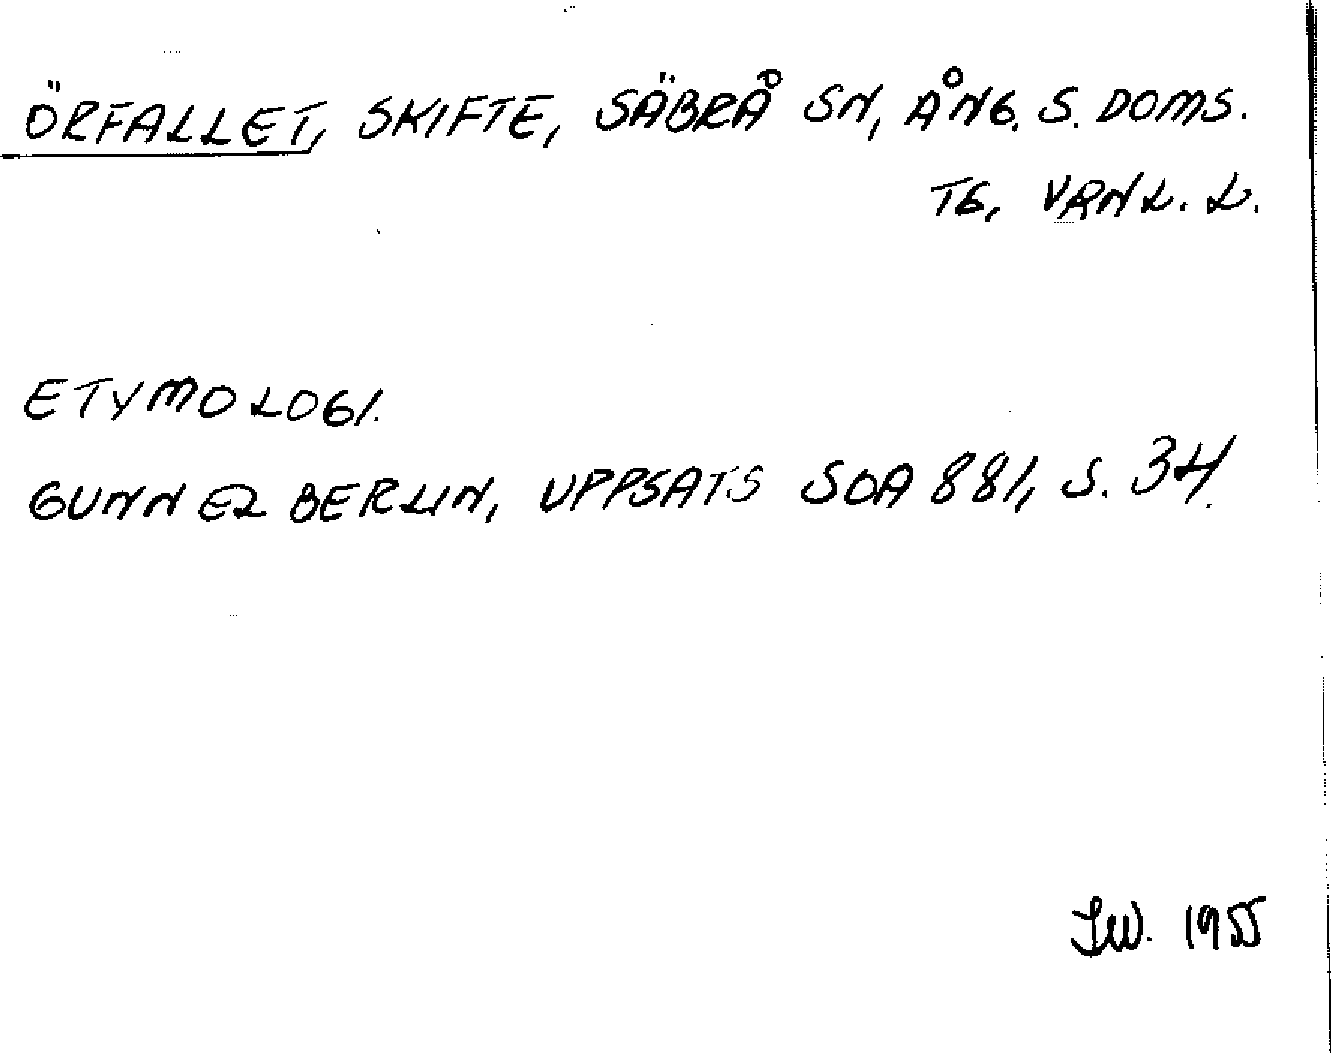 ÖRFALLET, SKIFTE, SÄBRÅ SN, ÅNG. S. DOMS.
TG, VRNL. L.
ETYMOLOGI.
GUNNEL BERLIN, UPPSATS SOA 881, S. 34.
1955